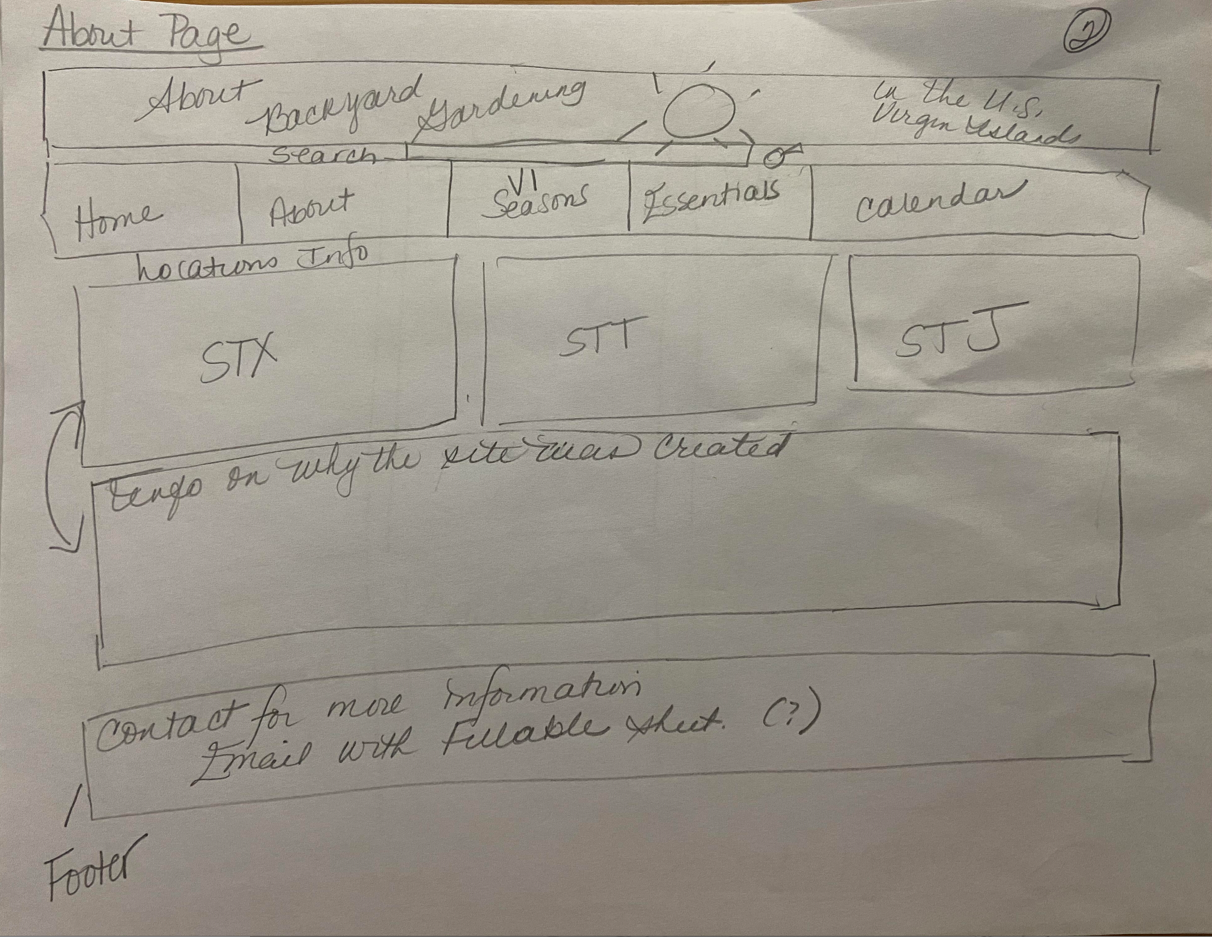 About Page
2
About Backyard Gardening
in the U.S.
Virgin Islands
Search
Home
About
VI
Seasons
Essentials
Calendar
Locations Info
STX
STT
STJ
on why the site was created
Contact for more information
Email with Fillable sheet. (?)
Footer